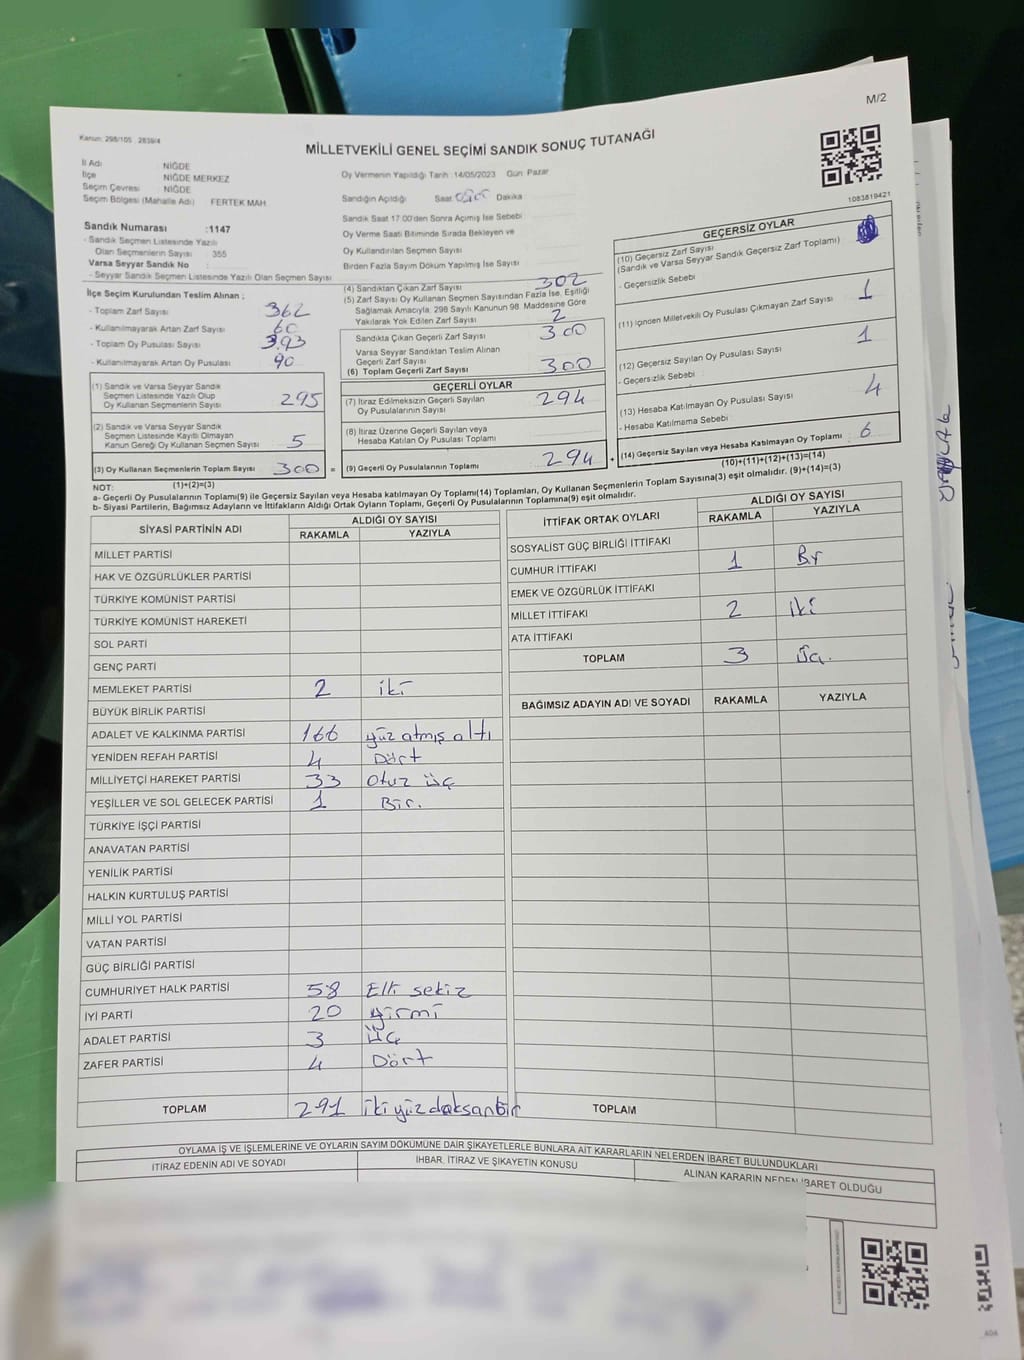 M/2
Kanun: 298/105 2839/4
MİLLETVEKİLİ GENEL SEÇİMİ SANDIK SONUÇ TUTANAĞI
1083819421
İl Adı : NİĞDE
İlçe : NİĞDE MERKEZ
Seçim Çevresi : NİĞDE
Seçim Bölgesi (Mahalle Adı) FERTEK MAH.
Sandık Numarası :1147
- Sandık Seçmen Listesinde Yazılı
Olan Seçmenlerin Sayısı 355
Varsa Seyyar Sandık No
- Seyyar Sandık Seçmen Listesinde Yazılı Olan Seçmen Sayısı
İlçe Seçim Kurulundan Teslim Alınan ;
- Toplam Zarf Sayısı 362
- Kullanılmayarak Artan Zarf Sayısı 60
- Toplam Oy Pusulası Sayısı 393
- Kullanılmayarak Artan Oy Pusulası 90
(1) Sandık ve Varsa Seyyar Sandık
Seçmen Listesinde Yazılı Olup
Oy Kullanan Seçmenlerin Sayısı 295
(2) Sandık ve Varsa Seyyar Sandık
Seçmen Listesinde Kayıtlı Olmayan
Kanun Gereği Oy Kullanan Seçmen Sayısı 5
(3) Oy Kullanan Seçmenlerin Toplam Sayısı 300 =
(1)+(2)=(3)
Oy Vermenin Yapıldığı Tarih :14/05/2023 Gün Pazar
Sandığın Açıldığı Saat Dakika
Sandık Saat 17.00'den Sonra Açımış İse Sebebi
Oy Verme Saati Bitiminde Sırada Bekleyen ve
Oy Kullandırılan Seçmen Sayısı
Birden Fazla Sayım Döküm Yapılmış İse Sayısı
(4) Sandıktan Çıkan Zarf Sayısı 302
(5) Zarf Sayısı Oy Kullanan Seçmen Sayısından Fazla İse, Eşitliği
Sağlamak Amacıyla, 298 Sayılı Kanunun 98. Maddesine Göre
Yakılarak Yok Edilen Zarf Sayısı 2
Sandıkta Çıkan Geçerli Zarf Sayısı 300
Varsa Seyyar Sandıktan Teslim Alınan
Geçerli Zarf Sayısı
(6) Toplam Geçerli Zarf Sayısı 300
GEÇERLİ OYLAR
(7) İtiraz Edilmeksizin Geçerli Sayılan
Oy Pusulalarının Sayısı 294
(8) İtiraz Üzerine Geçerli Sayılan veya
Hesaba Katılan Oy Pusulası Toplamı
(9) Geçerli Oy Pusulalarının Toplamı 294 +
GEÇERSİZ OYLAR
(10) Geçersiz Zarf Sayısı
(Sandık ve Varsa Seyyar Sandık Geçersiz Zarf Toplamı)
- Geçersizlik Sebebi
(11) İçinden Milletvekili Oy Pusulası Çıkmayan Zarf Sayısı 1
(12) Geçersiz Sayılan Oy Pusulası Sayısı 1
- Geçersizlik Sebebi
(13) Hesaba Katılmayan Oy Pusulası Sayısı 4
- Hesaba Katılmama Sebebi
(14) Geçersiz Sayılan veya Hesaba Katılmayan Oy Toplamı 6
(10)+(11)+(12)+(13)=(14)
NOT:
a- Geçerli Oy Pusulalarının Toplamı(9) ile Geçersiz Sayılan veya Hesaba katılmayan Oy Toplamı(14) Toplamları, Oy Kullanan Seçmenlerin Toplam Sayısına(3) eşit olmalıdır. (9)+(14)=(3)
b- Siyasi Partilerin, Bağımsız Adayların ve İttifakların Aldığı Ortak Oyların Toplamı, Geçerli Oy Pusulalarının Toplamına(9) eşit olmalıdır.
SİYASİ PARTİNİN ADI ALDIĞI OY SAYISI
RAKAMLA YAZIYLA
MİLLET PARTİSİ
HAK VE ÖZGÜRLÜKLER PARTİSİ
TÜRKİYE KOMÜNİST PARTİSİ
TÜRKİYE KOMÜNİST HAREKETİ
SOL PARTİ
GENÇ PARTİ
MEMLEKET PARTİSİ 2 iki
BÜYÜK BİRLİK PARTİSİ
ADALET VE KALKINMA PARTİSİ 166 yüz atmış altı
YENİDEN REFAH PARTİSİ 4 Dört
MİLLİYETÇİ HAREKET PARTİSİ 33 Otuz üç
YEŞİLLER VE SOL GELECEK PARTİSİ 1 Bir.
TÜRKİYE İŞÇİ PARTİSİ
ANAVATAN PARTİSİ
YENİLİK PARTİSİ
HALKIN KURTULUŞ PARTİSİ
MİLLİ YOL PARTİSİ
VATAN PARTİSİ
GÜÇ BİRLİĞİ PARTİSİ
CUMHURİYET HALK PARTİSİ 58 Elli sekiz
İYİ PARTİ 20 yirmi
ADALET PARTİSİ 3 üç
ZAFER PARTİSİ 4 Dört
TOPLAM 291 iki yüz doksanbir
İTTİFAK ORTAK OYLARI ALDIĞI OY SAYISI
RAKAMLA YAZIYLA
SOSYALİST GÜÇ BİRLİĞİ İTTİFAKI
CUMHUR İTTİFAKI 1 Bir
EMEK VE ÖZGÜRLÜK İTTİFAKI
MİLLET İTTİFAKI 2 iki
ATA İTTİFAKI
TOPLAM 3 üç.
BAĞIMSIZ ADAYIN ADI VE SOYADI RAKAMLA YAZIYLA
TOPLAM
OYLAMA İŞ VE İŞLEMLERİNE VE OYLARIN SAYIM DÖKÜMÜNE DAİR ŞİKAYETLERLE BUNLARA AİT KARARLARIN NELERDEN İBARET BULUNDUKLARI
İTİRAZ EDENİN ADI VE SOYADI İHBAR, İTİRAZ VE ŞİKAYETİN KONUSU ALINAN KARARIN NEDEN İBARET OLDUĞU